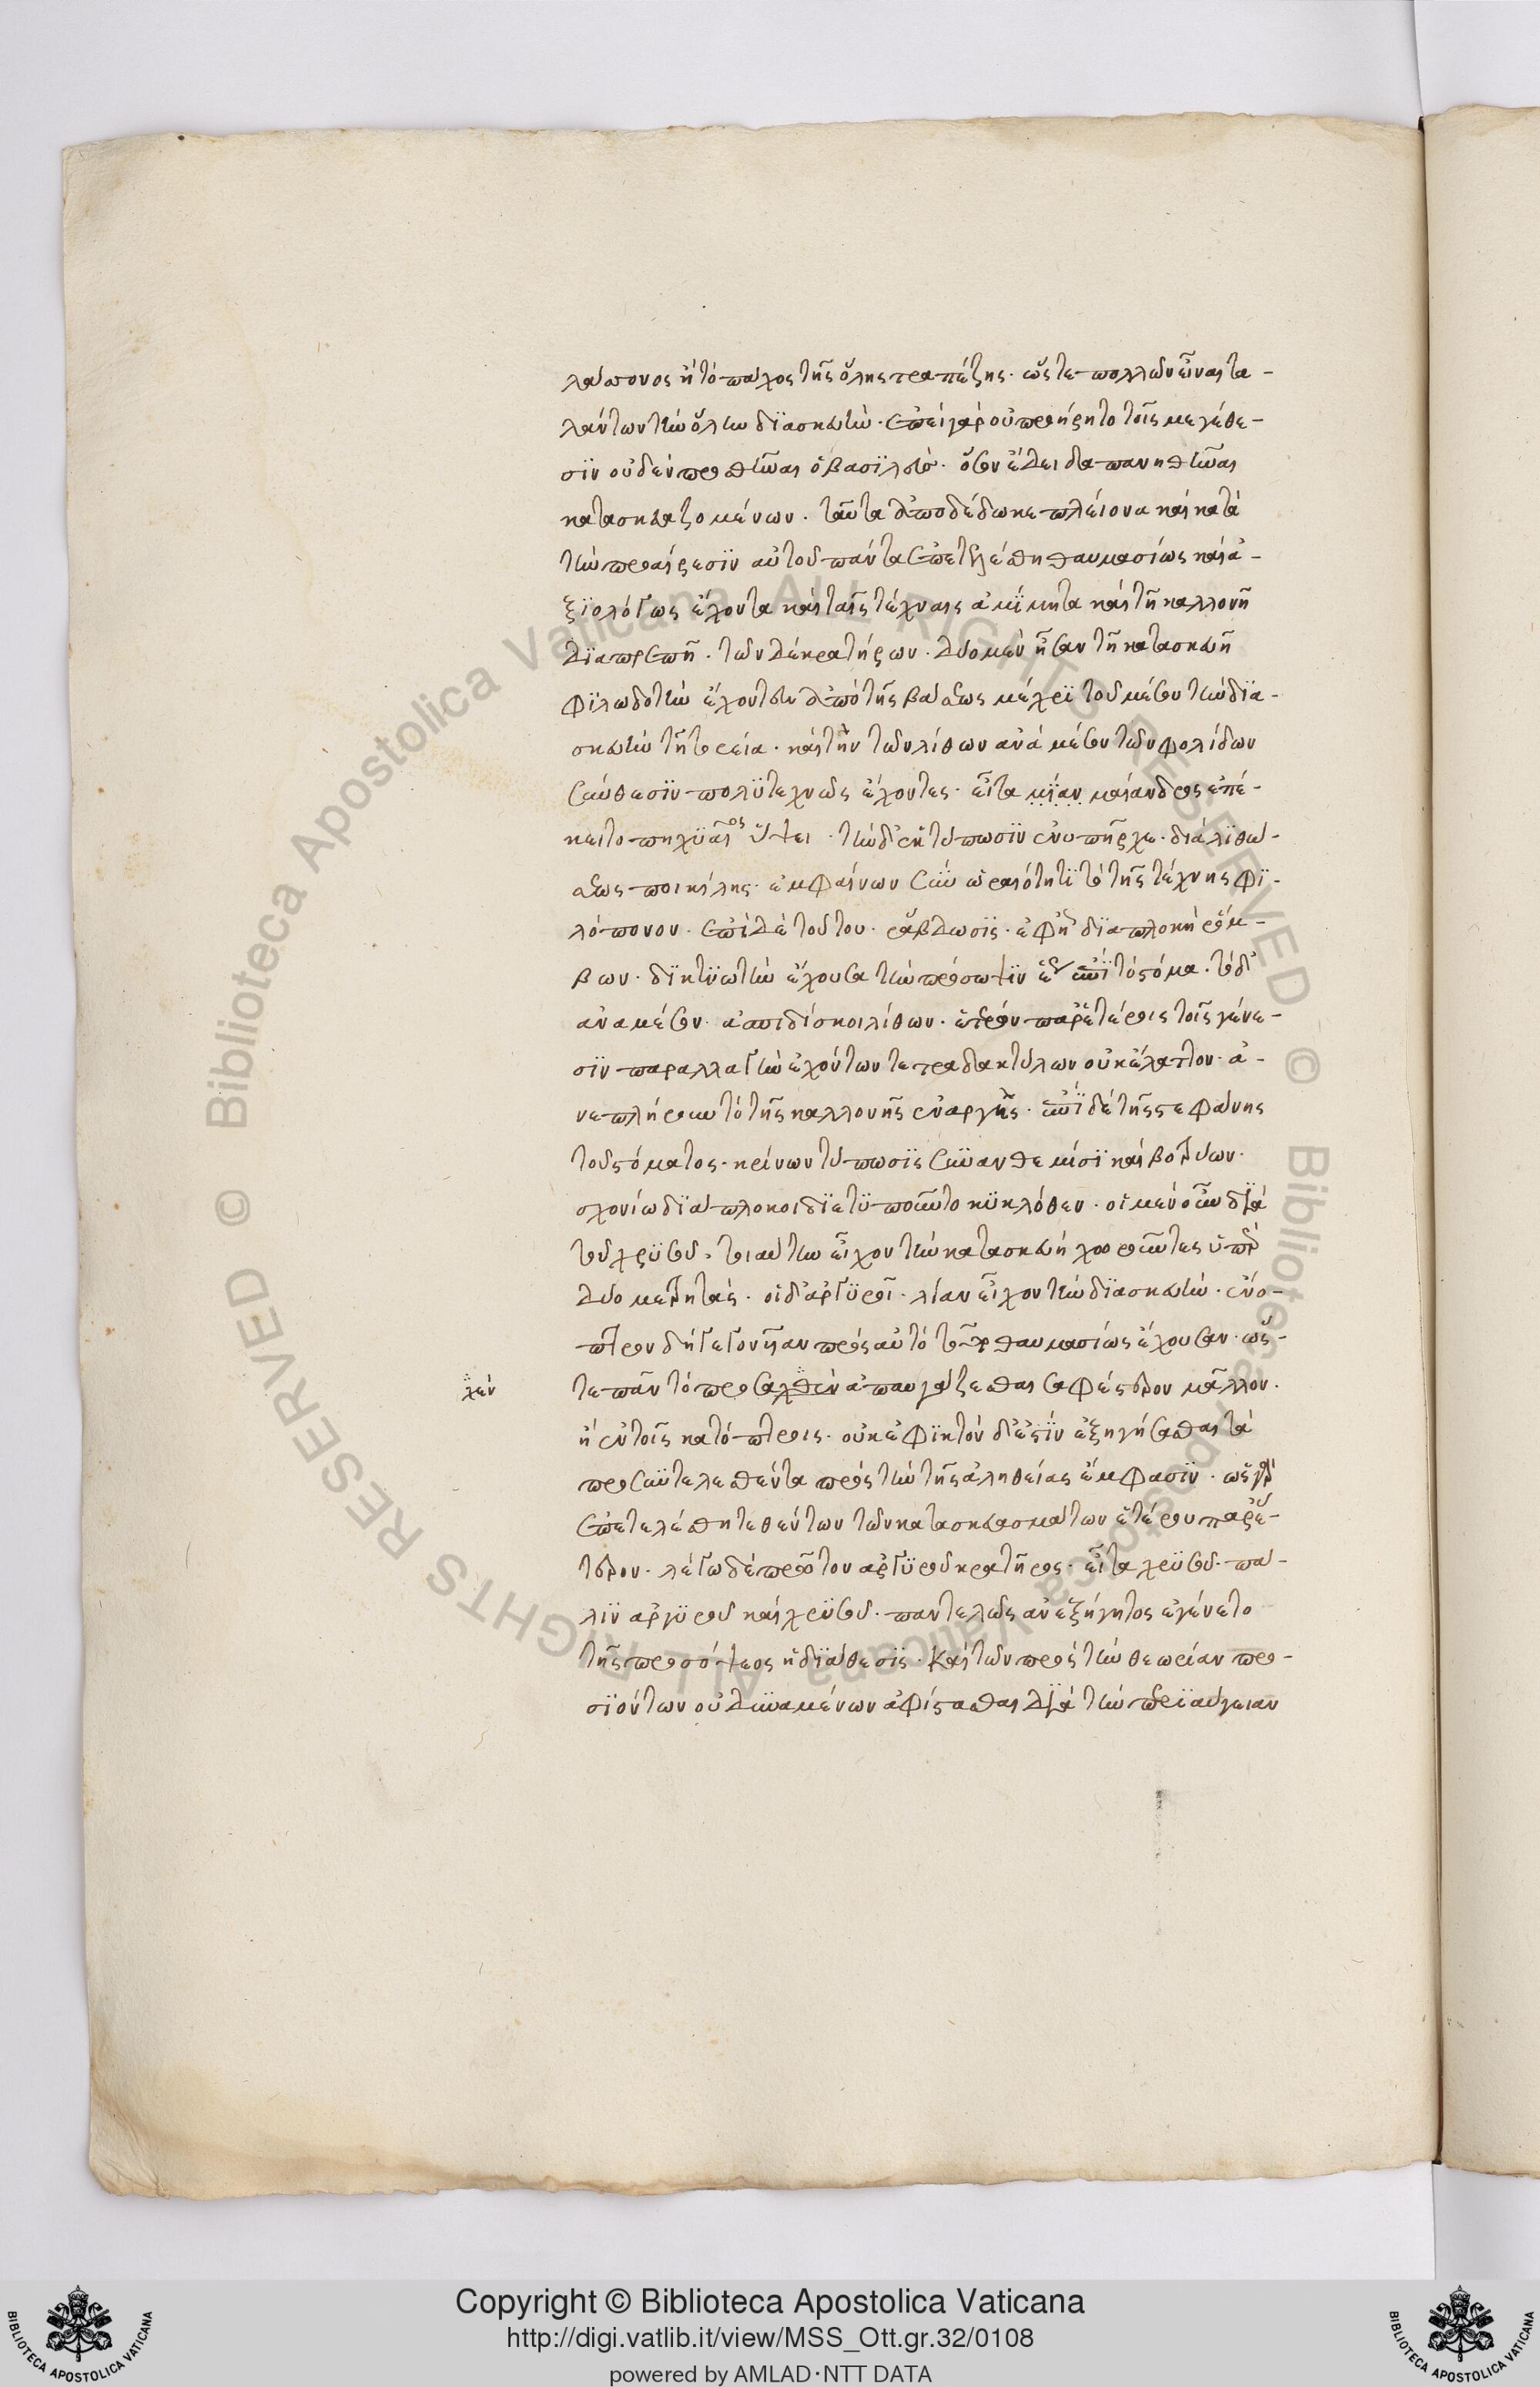 λάσσονος ἢ τὸ πάχος τῆς ὅλης τραπέζης. ὥστε πολλῶν εἶναι τα-
λάντων τὴν ὅλην διασκευήν. ἐπεὶ γὰρ οὐ προῄρητο τοῖς μεγέθε-
σϊν οὐδὲν προσθεῖναι ὁ βασιλεύς. ὅσον ἔδει δαπανηθῆναι
κατασκευαζομένων. ταῦτα ἀποδέδωκε πλείονα καὶ κατὰ
τὴν προαίρεσϊν αὐτοῦ πάντα ἐπετελέσθη θαυμασίως καὶ ἀ-
ξϊολόγως ἔχοντα καὶ ταῖς τέχναις ἀμίμητα καὶ τῇ καλλονῇ
διαπρεπῆ. τῶν δὲ κρατήρων. δύο μὲν ἦσαν τῇ κατασκευῇ
φϊλωδοτὴν ἔχοντες ἀπὸ τῆς βάσεως μέχρϊ τοῦ μέσου τὴν δϊα-
σκευὴν τῇ τορεία. καὶ τὴν τῶν λίθων ἀνὰ μέσον τῶν φολίδων
σύνθεσϊν πολϋτεχνῶς ἔχοντες. εἶτα μίαν μαίανδρος ἐπέ-
κειτο πηχϋαῖος ὕψει. τὴν δ' ἐκτύπωσϊν ἐνυπῆρχε. διὰ λϊθώ-
σεως ποικίλης. ἐμφαίνων σὺν ὡραιότητϊ τὸ τῆς τέχνης φϊ-
λόπονον. ἐπὶ δὲ τούτου. ῥάβδωσϊς. ἐφ' ᾗ δϊαπλοκὴ ῥόμ-
βων. δϊκτϋωτὴν ἔχουσα τὴν πρόσοψϊν ἕως ἐπὶ τὸ στόμα. τὸ δ'
ἀναμέσον. ἀσπιδίσκοι λίθων. ἑτέρων παρ' ἑτέροις τοῖς γένε-
σϊν παραλλαγὴν ἐχόντων τετραδακτύλων οὐκ ἔλαττον. ἀ-
νεπλήρουν τὸ τῆς καλλονῆς ἐναργές. ἐπὶ δὲ τῆς στεφάνης
τοῦ στόματος. κρίνων τύπωσϊς σὺν ἀνθεμίσϊ καὶ βοτρύων.
σχοινίω δϊάπλοκοι δϊετϋποῦντο κϋκλόθεν. οἱ μὲν οὖν διὰ
τοῦ χρϋσοῦ. τοιαύτην εἶχον τὴν κατασκευὴν χωροῦντες ὑπὲρ
δύο μετρητάς. οἱ δ' ἀργϋροῖ. λίαν εἶχον τὴν δϊασκευήν. ἐνό-
πτρον δὴ γεγονῆαν πρὸς αὐτὸ τοῦτο θαυμασίως ἔχουσαν. ὥσ-
χὲν τε πᾶν τὸ προσαχθὲν ἀπαυγάζεσθαι σαφέστερον μᾶλλον.
ἢ ἐν τοῖς κατόπτροις. οὐκ ἐφϊκτὸν δ' ἐστὶν ἐξηγήσασθαι τὰ
προσϋντελεσθέντα πρὸς τὴν τῆς ἀληθείας ἔμφασϊν. ὡς γὰρ
ἐπετελέσθη τεθέντων τῶν κατασκευασμάτων ἑτέρου παρ' ἕ-
τερον. λέγω δὲ πρῶτον ἀργϋροῦ κρατῆρος. εἶτα χρϋσοῦ. πά-
λϊν ἀργϋροῦ καὶ χρϋσοῦ. παντελῶς ἀνεξήγητος ἐγένετο
τῆς προσόψεος ἡ δϊάθεσϊς. Καὶ τῶν πρὸς τὴν θεωρίαν προ-
σϊόντων οὐ δυναμένων ἀφίστασθαι διὰ τὴν περϊαύγειαν
Copyright © Biblioteca Apostolica Vaticana
http://digi.vatlib.it/view/MSS_Ott.gr.32/0108
powered by AMLAD·NTT DATA